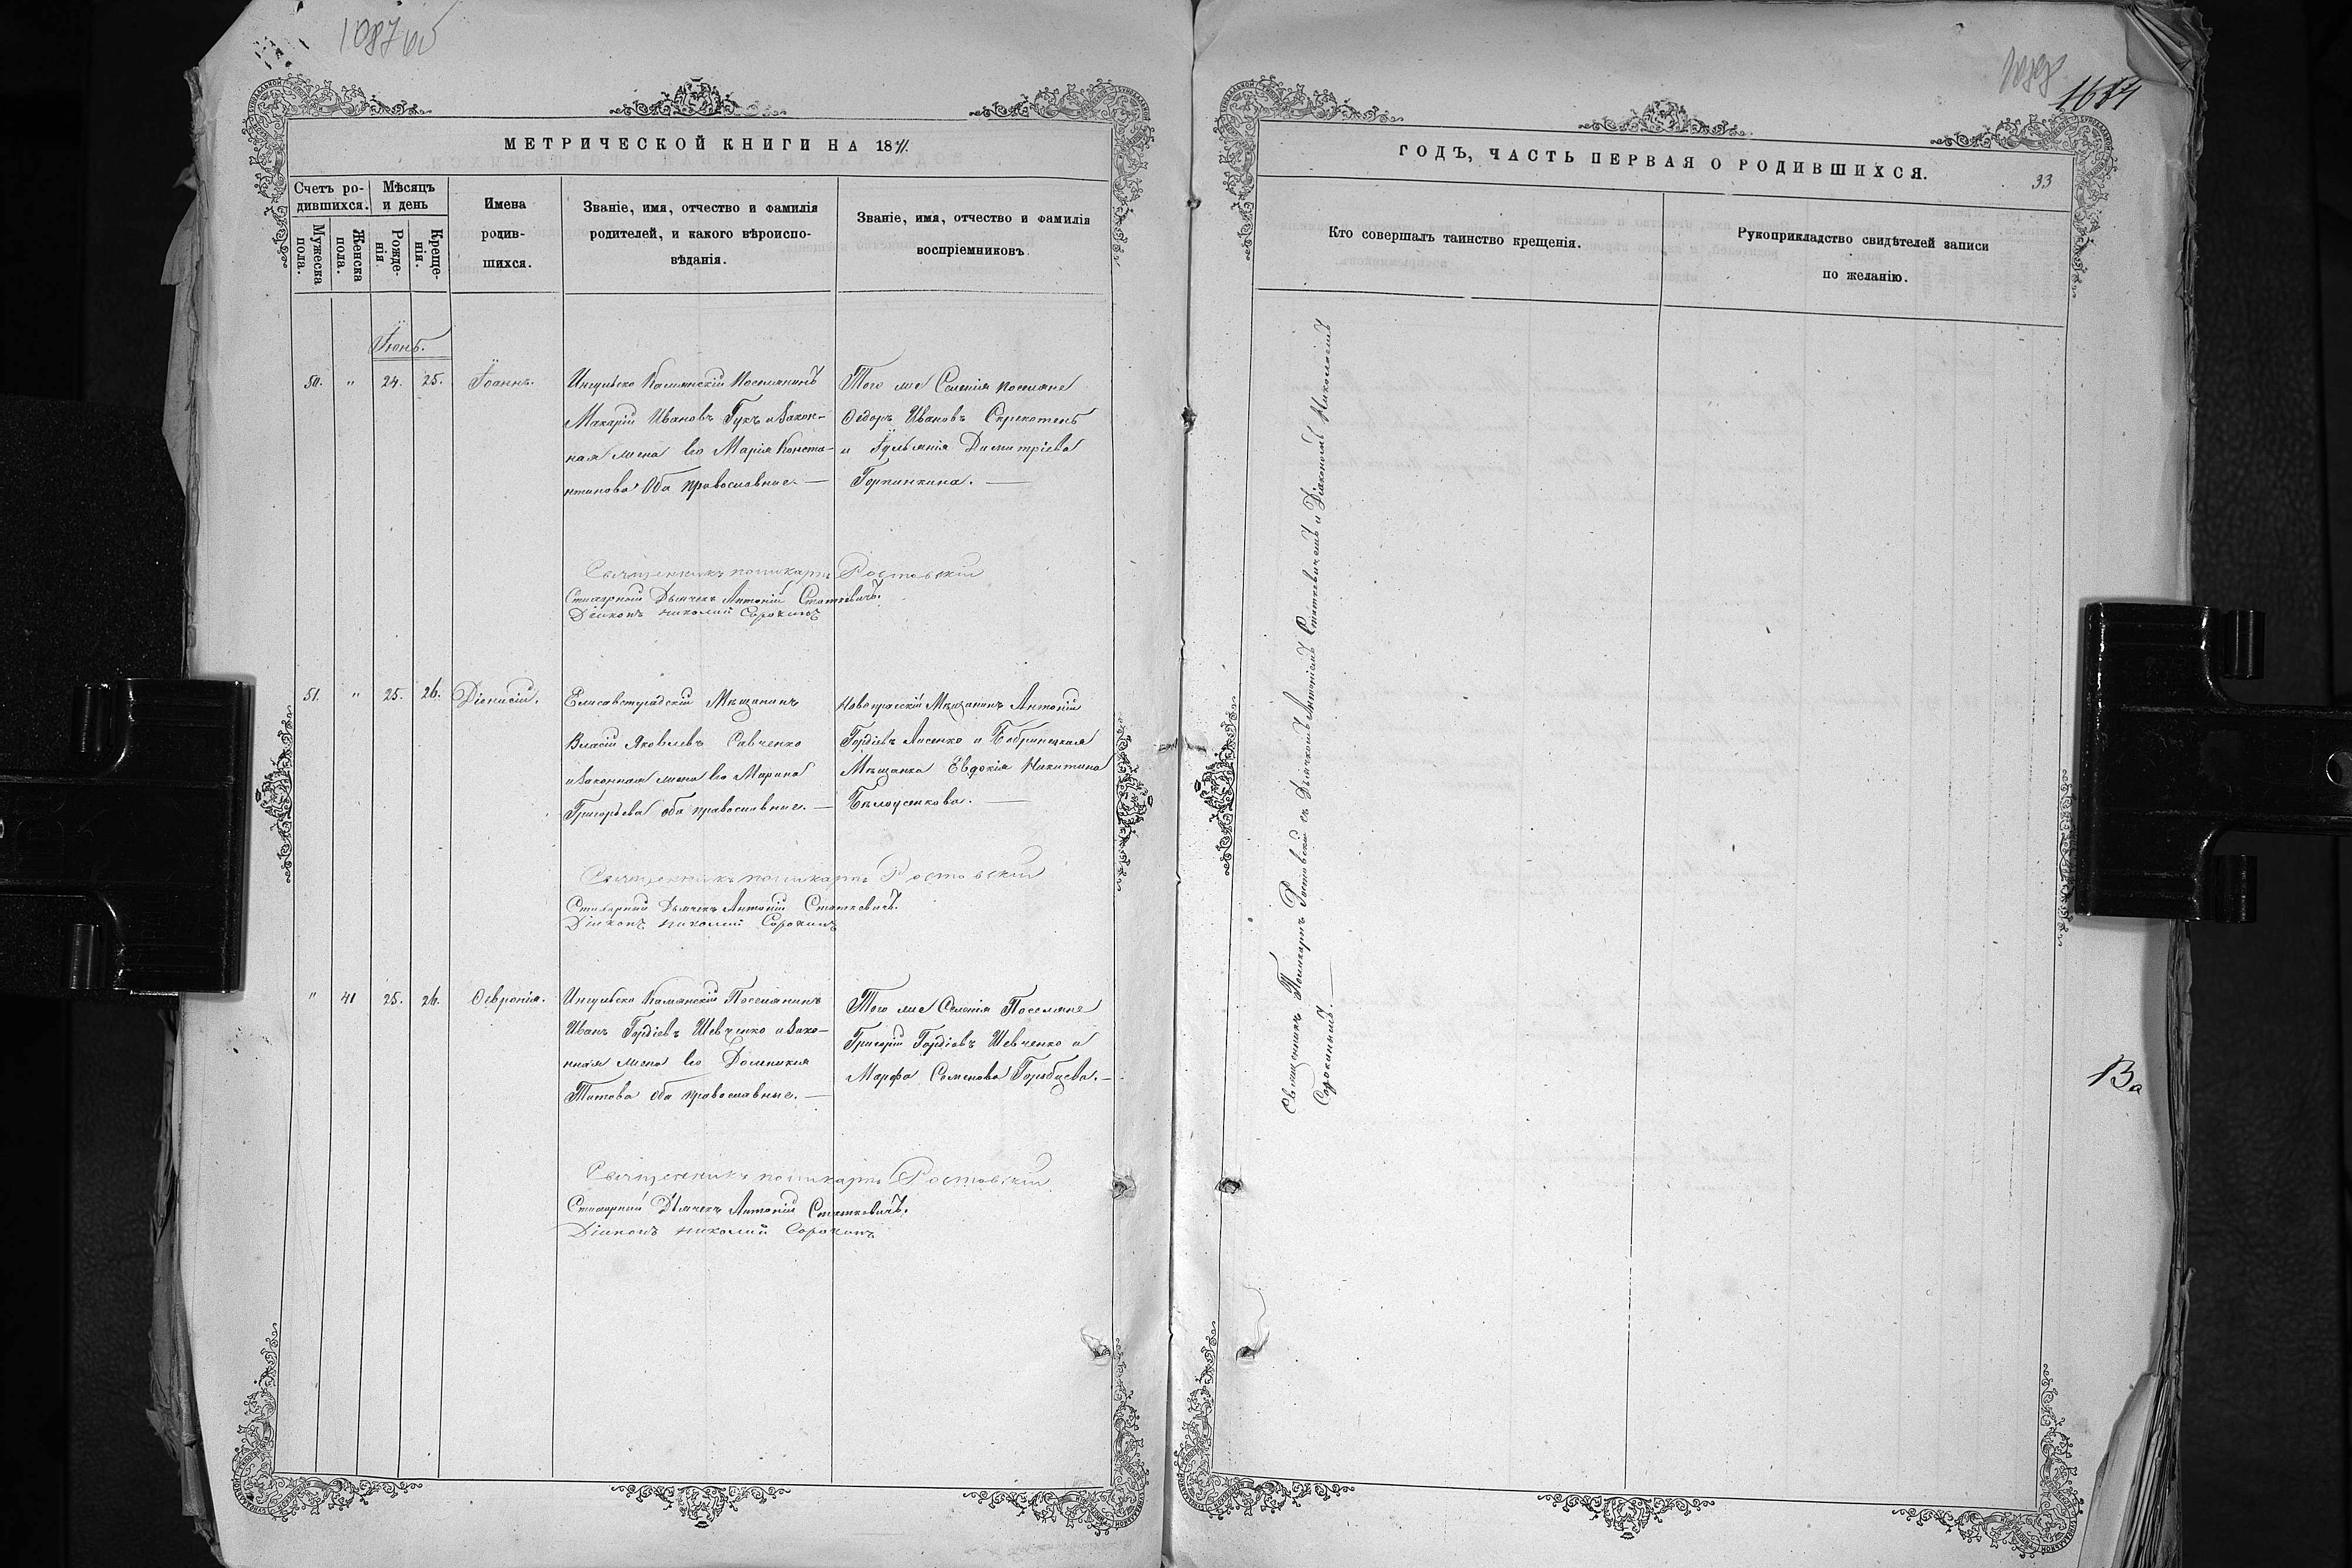 1087 об
МЕТРИЧЕСКОЙ КНИГИ НА 1871.
Счетъ родившихся.
Мѣсяцъ и день
Мужеска пола.
Женска пола.
Рожденія.
Крещенія.
Имена
родив-
шихся.
Званіе, имя, отчество и фамилія
родителей, и какого вѣроиспо-
вѣданія.
Званіе, имя, отчество и фамилія
воспріемниковъ
Іюнь.
50. " 24. 25. Іоаннъ.
Ингульско Камянскій Поселянинъ
Макарій Ивановъ Гукъ и закон-
ная жена его Марія Конста-
нтинова Оба православные. —
Того же Селенія поселяне
Ѳедоръ Ивановъ Скрекотень
и Іуліанія Димитріева
Горпинкина. —
Священникъ Поликарпъ Ростовскій
Стихарный Дьячекъ Антоній Статкевичъ.
Діаконъ Николай Сорокинъ
51. " 25. 26. Діонисій.
Елисаветградскій Мѣщанинъ
Власій Яковлевъ Савченко
и законная жена его Марина
Григорьева оба православные. —
Новопражскій Мѣщанинъ Антоній
Гордіевъ Лисенко и Бобринецкая
Мѣщанка Евдокія Никитина
Бѣлоусенкова. —
Священникъ Поликарпъ Ростовскій
Стихарный Дьячекъ Антоній Статкевичъ.
Діаконъ Николай Сорокинъ
" 41 25. 26. Ѳевронія.
Ингульско Камянскій Поселянинъ
Иванъ Гордіевъ Шевченко и зако-
нная жена его Домникія
Титова оба православные. —
Того же Селенія Поселяне
Григорій Гордіевъ Шевченко и
Марфа Семенова Горобцева. —
Священникъ Поликарпъ Ростовскій
Стихарный Дьячекъ Антоній Статкевичъ.
Діаконъ Николай Сорокинъ
1084
ГОДЪ, ЧАСТЬ ПЕРВАЯ О РОДИВШИХСЯ.
33
Кто совершалъ таинство крещенія.
Рукоприкладство свидѣтелей записи
по желанію.
Священникъ Поликарпъ Ростовскій съ Дьячкомъ Антоніемъ Статкевичемъ и Діакономъ Николаемъ
Сорокинымъ. —
Ва